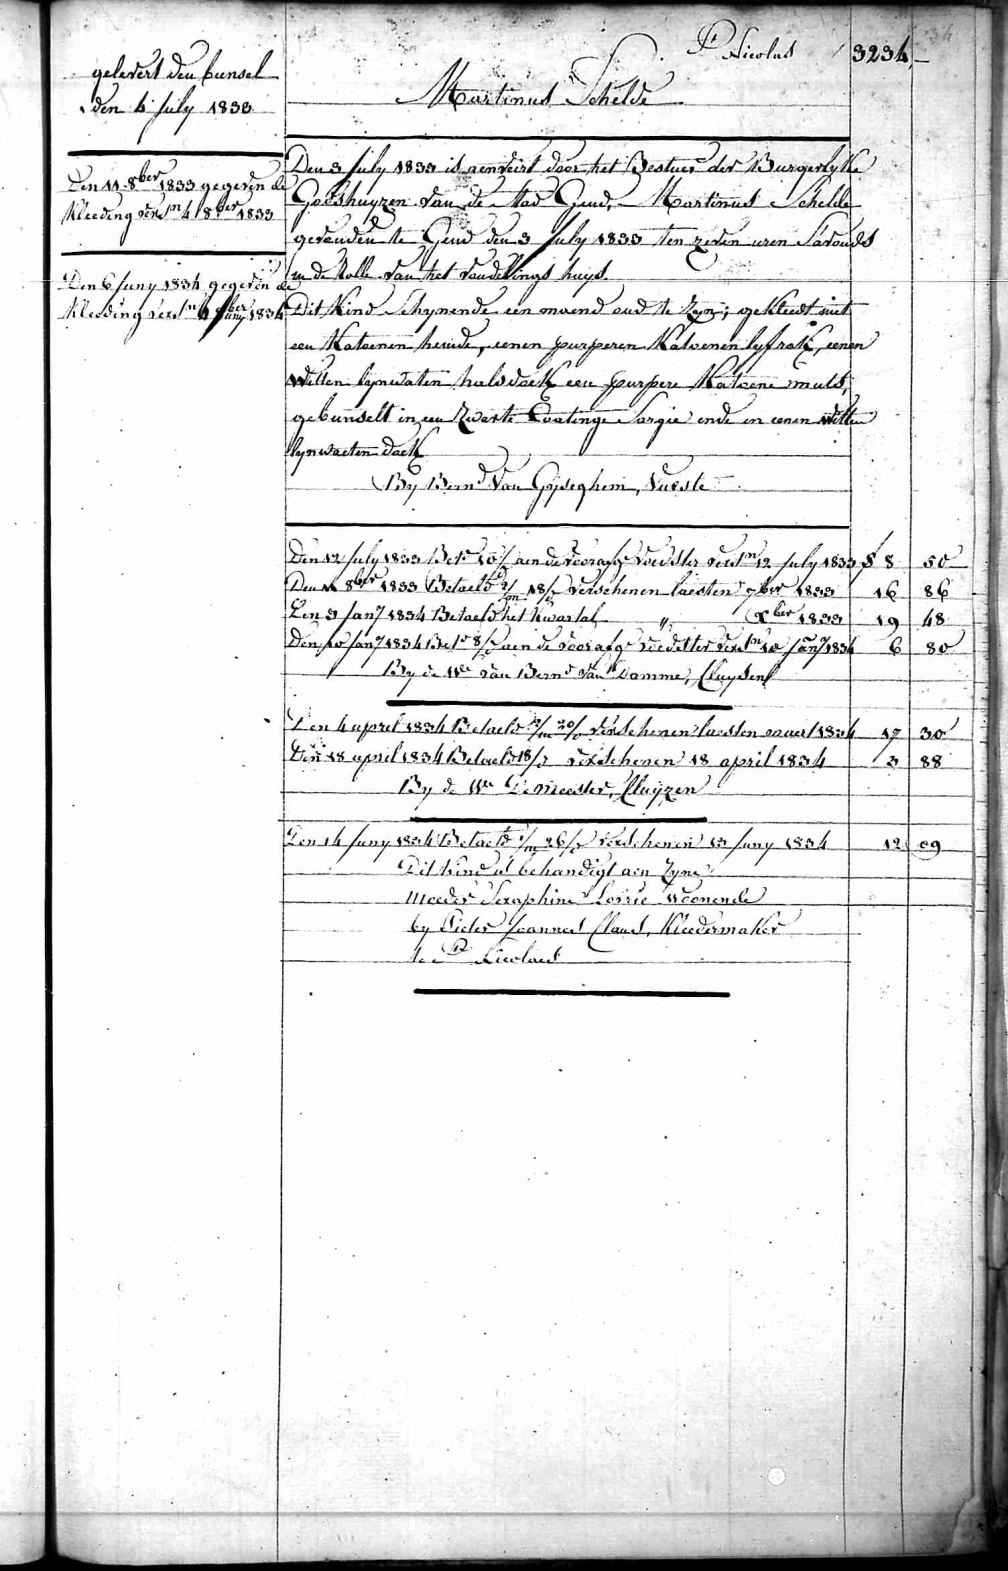 St Nicolas 3234,-
gelevert den bunsel
den 4 July 1833
Martinus Schelde
Den 11 8ber 1833 gegeven de
Kleeding vers n 4 8ber 1833
Den 6 Juny 1834 gegeven de
Kleeding vers n 4 Juny 1834
Den 3 July 1833 is aenveirt door het Bestuer der Burgerlyke
Godshuyzen van de Stad Gend, Martinus Schelde
gevonden te Gend den 3 July 1833 ten zeven uren S'avonds
in de Rolle van het vondelings huys.
Dit Kind Schynende een maend oud te Zyn; gekleedt met
een Katoenen hemde, eenen purperen Katoenen lyfrok, eenen
Witten lynwaten halsdoek een purpere Katoene muts,
gebunselt in een Zwarte Coatinge Sargie ende in eenen witten
lynwaeten doek
By Bernd Van Gyseghem, Vurste
Den 12 July 1833 Bet 10/ aen de voorafge voedster vers n 12 July 1833 f 8 50
Den 11 8ber 1833 Betaeld 2/m 18/ verschenen laesten 7ber 1833 16 86
Den 3 Jany 1834 Betaeld het Kwartal " Xber 1833 19 48
Den 10 Jany 1834 Bet 8/ aen de voorafge voedster vers n 10 Jany 1834 6 80
By de We van Bernd Van Damme, Cluysen
Den 4 april 1834 Betaeld 2/m 20/ verschenen laesten maert 1834 17 30
Den 18 april 1834 Betaeld 18/ verschenen 18 april 1834 3 88
By de We De Meester, Cluyzen
Den 14 Juny 1834 Betaeld 1/m 26/ verschenen 13 Juny 1834 12 09
Dit kind is behandigt aen Zyne
moeder Seraphine woonende
by Pieter Joannes Claus, Kleedermaker
te St Nicolaes